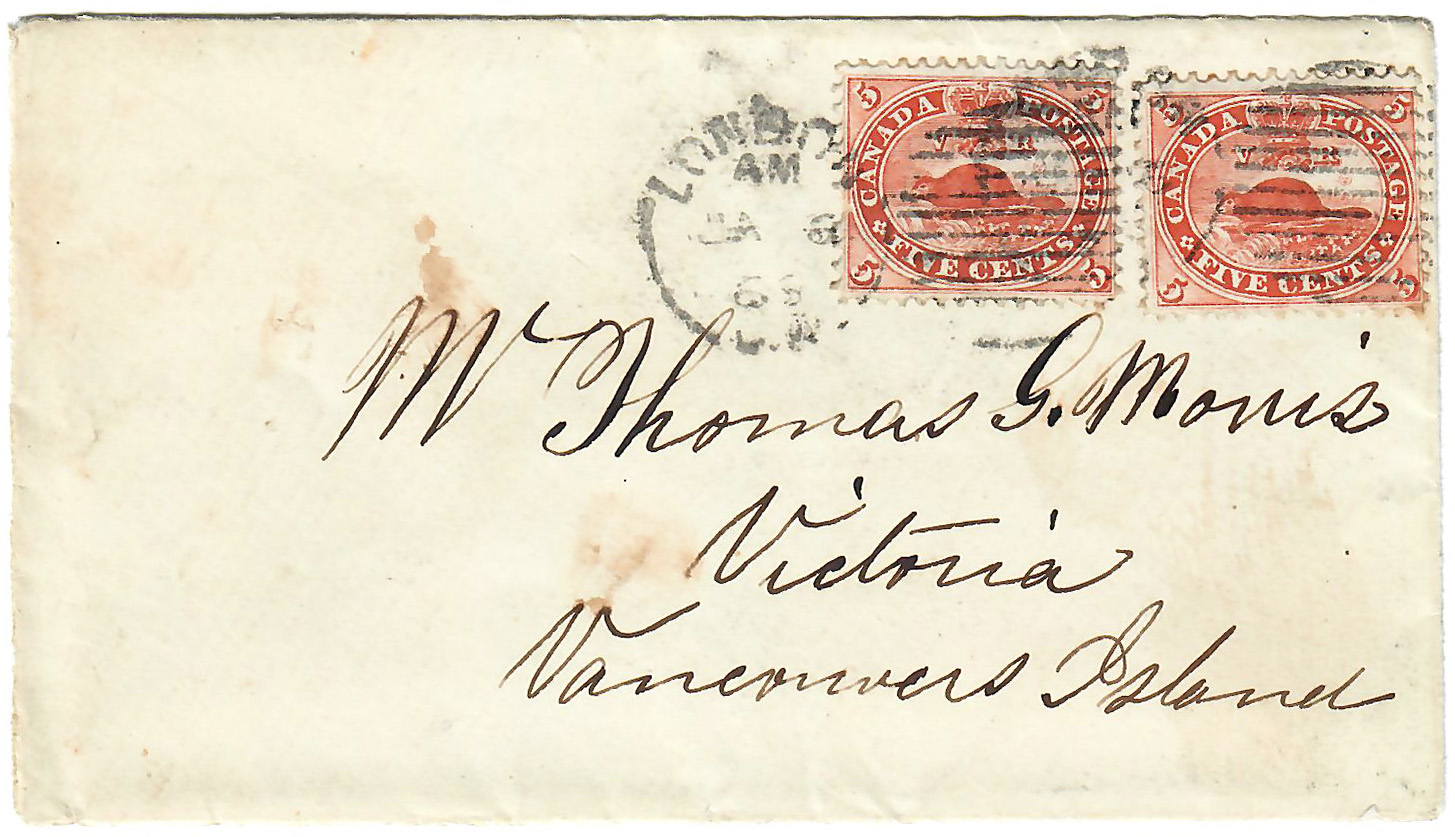 LONDON
AM
JA 6
C.W.
5 5
CANADA POSTAGE
V R
FIVE CENTS
5 5
5 5
CANADA POSTAGE
V R
FIVE CENTS
5 5
Mr Thomas G. Morris
Victoria
Vancouvers Island